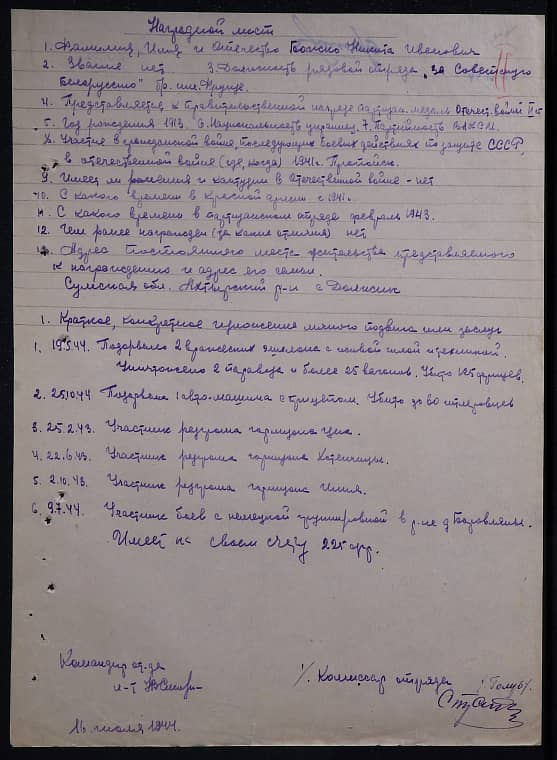 Наградной лист
1. Фамилия, Имя и Отчество Божко Никита Иванович
2. Звание нет 3. Должность рядовой отряда „За Советскую
Белоруссию" бр. им. Фрунзе.
4. Представляется к правительственной награде партизан. медаль Отечест. войны II ст
5. Год рождения 1913. 6. Национальность украинец. 7. Партийность ВЛКСМ.
8. Участие в гражданской войне, последующих боевых действиях по защите СССР,
в отечественной войне (где, когда) 1941г. Пропойск.
9. Имеет ли ранения и контузии в Отечественной войне - нет
10. С какого времени в красной армии с 1941г.
11. С какого времени в партизанском отряде февраль 1943.
12. Чем ранее награжден (за какие отличия) нет
13. Адрес постоянного места жительства представляемого
к награждению и адрес его семьи.
Сумская обл. Ахтырский р-н с
1. Краткое, конкретное изложение личного подвига или заслуг
1. 19.5.44. Подорвано 2 вражеских эшелона с живой силой и техникой.
Уничтожено 2 паровоза и более 25 вагонов. Убито 125 фрицев.
2. Подорвана 1 авто-машина с прицепом. Убито до 60 гитлеровцев
3. 25.2.43. Участник разгрома гарнизона
4. 22.6.43. Участник разгрома гарнизона Хотенчицы.
5. 2.10.43. Участник разгрома гарнизона Илия.
6. 9.7.44. Участник боев с немецкой группировкой в р-не д. Боровляны.
Имеет на своем счету 225 фр.
Командир от-да
л-т
/ Комиссар отряда
/Голуб/.
16 июля 1944г.